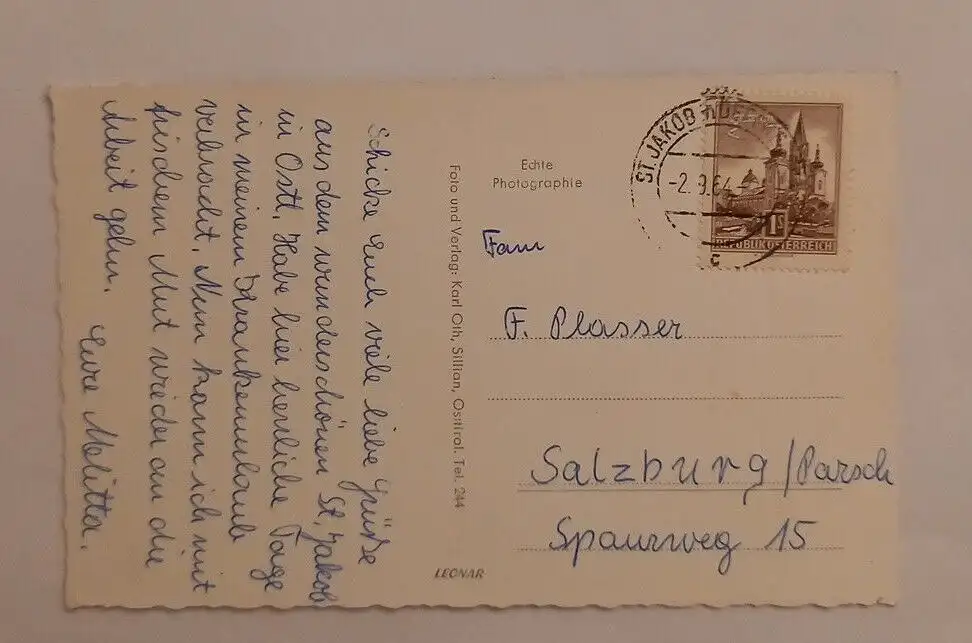 Schicke Euch viele liebe Grüße
aus dem wunderschönen St. Jakob
in Ostt. Habe hier herrliche Tage
in meinem Krankenurlaub
verbracht. Nun kann ich mit
frischem Mut wieder an die
Arbeit gehn.
Eure Melitta.
Foto und Verlag: Karl Oth, Sillian, Osttirol. Tel. 244
LEONAR
Echte
Photographie
ST. JAKOB
-2.9.64
c
1S
REPUBLIK ÖSTERREICH
Fam
F. Plasser
Salzburg/Parsch
Spaurweg 15